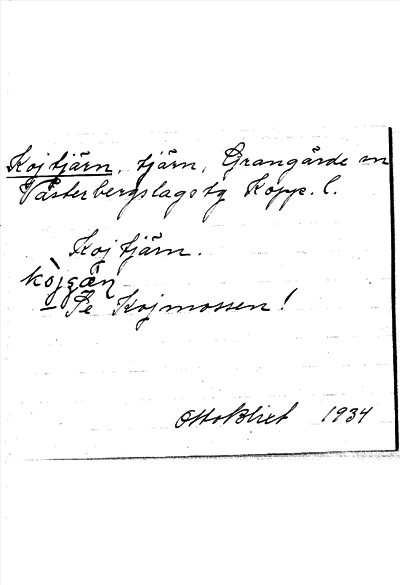 Kojtjärn, tjärn, Grangärde sn
Västerbergslags tg Kopp. l.
Kojtjärn.
kòjɕän
– Se Kojmossen!
Otto Blixt 1934